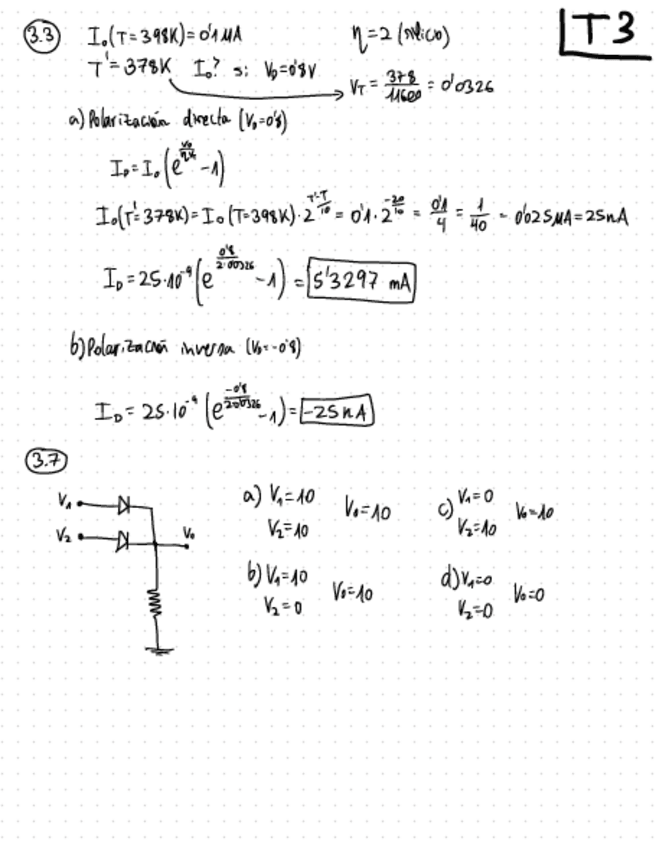 T3
3.3 I₀(T=398K)=0'1 µA η=2 (silicio)
T'=378K I₀? si V_D=0'8V V_T = 378/11600 = 0'0326
a) Polarización directa (V_D=0'8)
I_D = I₀(e^(V_D/ηV_T) - 1)
I₀(T'=378K) = I₀(T=398K)·2^((T'-T)/10) = 0'1·2^(-20/10) = 0'1/4 = 1/40 = 0'025 µA = 25nA
I_D = 25·10⁻⁹(e^(0'8/2·0'0326) - 1) = 5'3297 mA
b) Polarización inversa (V_D=-0'8)
I_D = 25·10⁻⁹(e^(-0'8/2·0'0326) - 1) = -25nA
3.7
V₁
V₂ V₀
a) V₁=10 V₂=10 V₀=10
b) V₁=10 V₂=0 V₀=10
c) V₁=0 V₂=10 V₀=10
d) V₁=0 V₂=0 V₀=0